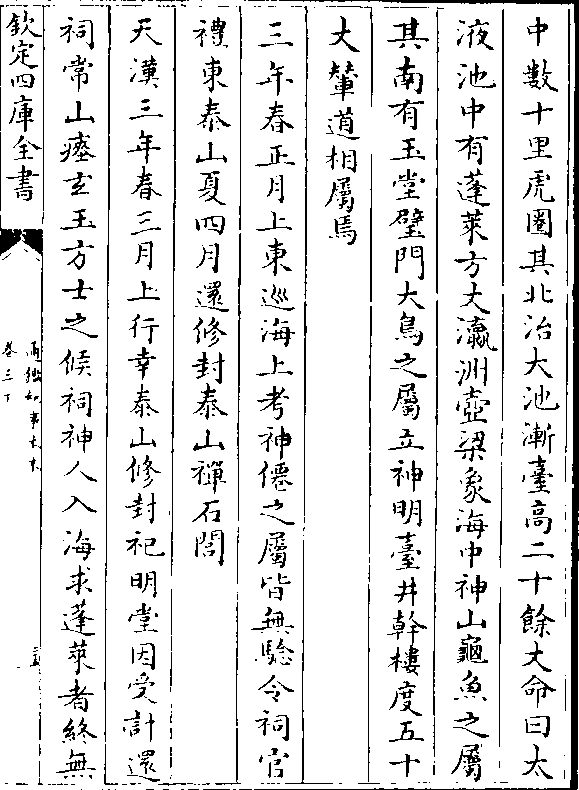 中數十里虎圈其北治大池漸臺高二十餘丈命曰太
液池中有蓬萊方丈瀛洲壺梁象海中神山龜魚之屬
其南有玉堂璧門大鳥之屬立神明臺井幹樓度五十
丈輦道相屬焉
三年春正月上東巡海上考神僊之屬皆無驗令祠官
禮東泰山夏四月還修封泰山禪石閭
天漢三年春三月上行幸泰山修封祀明堂因受計還
祠常山瘞玄玉方士之候祠神人入海求蓬萊者終無
欽定四庫全書
通鑑紀事本末
卷三下